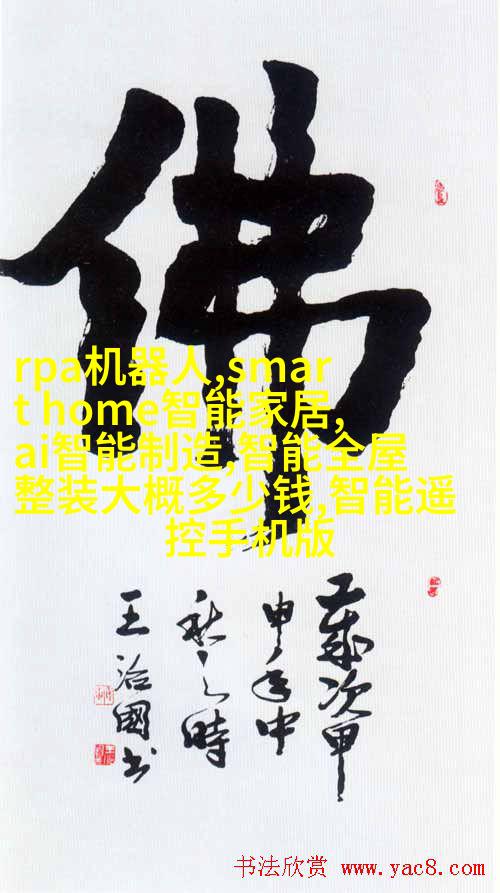 佛
rpa机器人,smar
t home智能家居,
ai智能制造,智能全屋
整装大概多少钱,智能遥
控手机版
歲次甲
申年中
秋之時
王治國书
书法欣赏 www.yac8.com